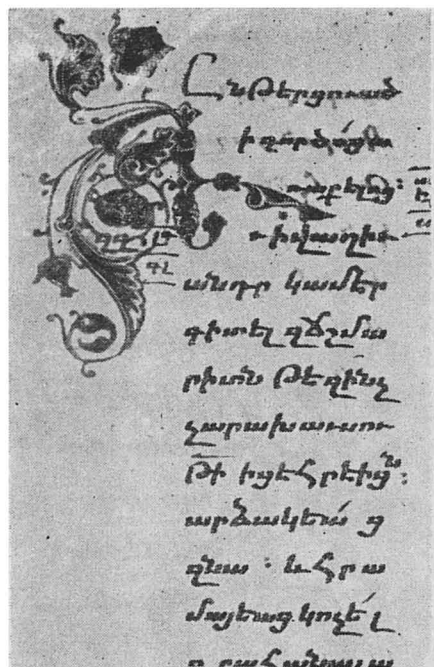 Ընթերցուած
ի գործոց ա
ռաքելոց։
ի վաղիւ
անդր կամեր
գիտել զճշմա
րիտն թէ զինչ
չարախաւսու
թի իցէ հրէիցն։
արձակեաց
զնա․ և հրա
մայեաց կոչել